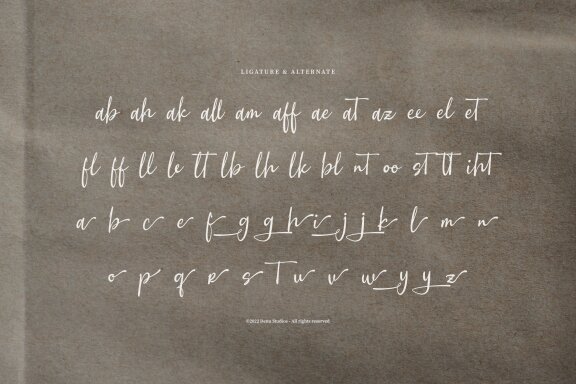 LIGATURE & ALTERNATE
ab ah ak all am aff ae at az ee el et
fl ff ll le tt lb lh lk bl nt oo st tt iht
a b c e f g g h i j j k l m n
o p q r s t u v w y y z
©2022 Studios - All rights reserved